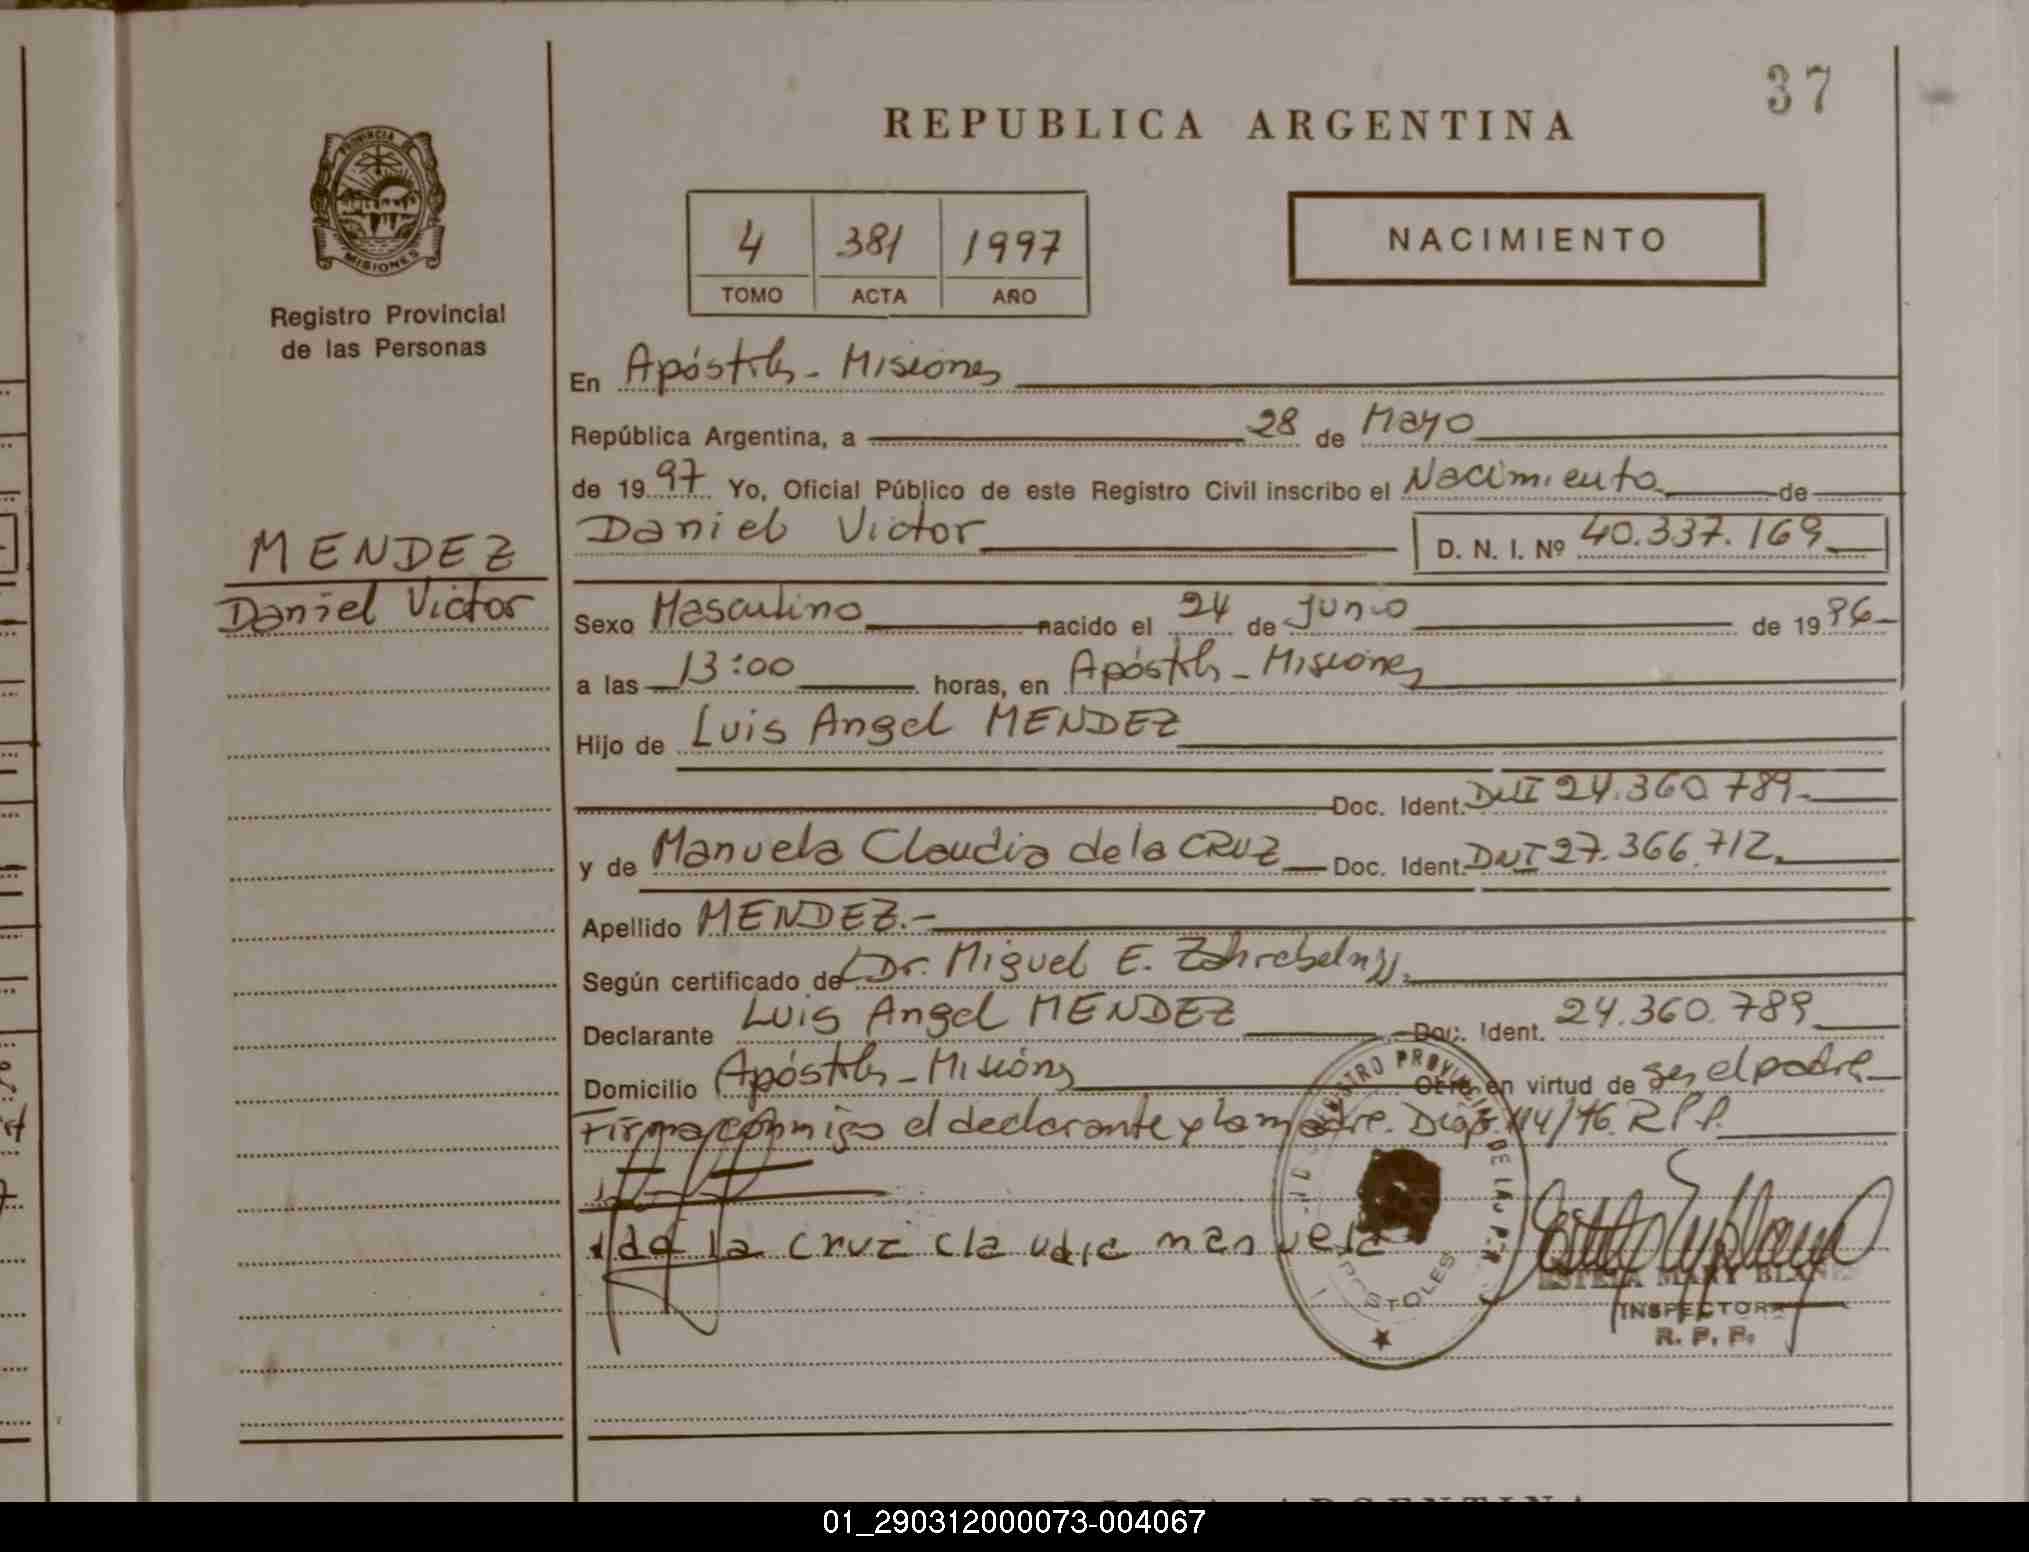 37
REPUBLICA ARGENTINA
PROVINCIA DE
MISIONES
Registro Provincial
de las Personas
4 381 1997
TOMO ACTA AÑO
NACIMIENTO
En Apóstoles - Misiones
República Argentina, a 28 de Mayo
de 1997 Yo, Oficial Público de este Registro Civil inscribo el Nacimiento de
MENDEZ
Daniel Victor
Daniel Victor D. N. I. Nº 40.337.169
Sexo Masculino nacido el 24 de Junio de 1996
a las 13:00 horas, en Apóstoles - Misiones
Hijo de Luis Angel MENDEZ
Doc. Ident. DNI 24.360.789
y de Manuela Claudia de la CRUZ Doc. Ident. DNI 27.366.712
Apellido MENDEZ.-
Según certificado del Dr. Miguel E.
Declarante Luis Angel MENDEZ Doc. Ident. 24.360.789
Domicilio Apóstoles - Misiones Obra en virtud de ser el padre
Firma conmigo el declarante y la madre. Disp. 114/76. R.P.P.
de la cruz claudia manuela
REGISTRO PROVINCIAL DE LAS P.
APOSTOLES
ESTELA MARY
INSPECTORA
R. P. P.
01_290312000073-004067